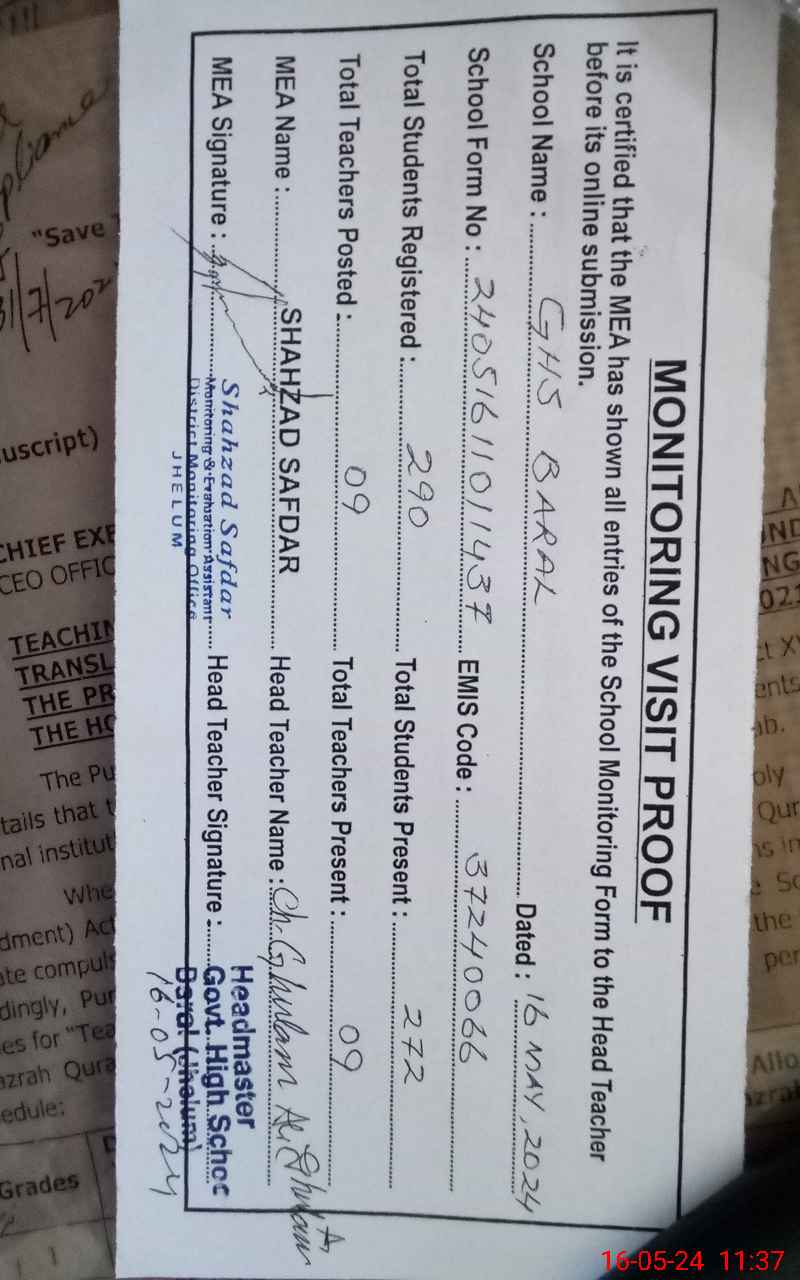 MONITORING VISIT PROOF
It is certified that the MEA has shown all entries of the School Monitoring Form to the Head Teacher
before its online submission.
School Name : GHS BARAL Dated : 16 MAY, 2024
School Form No : 2405161101143 EMIS Code : 37240066
Total Students Registered : 290 Total Students Present : 272
Total Teachers Posted : 09 Total Teachers Present : 09
MEA Name : SHAHZAD SAFDAR Head Teacher Name : Ch. Ghulam Ali
MEA Signature : Head Teacher Signature :
Shahzad Safdar
Monitoring & Evaluation Assistant
District Monitoring Office
JHELUM
Headmaster
Govt. High School
Baral (Jhelum)
16-05-2024
"Save
31/7/202
uscript)
CHIEF EXE
CEO OFFIC
TEACHIN
TRANSL
THE PR
THE HO
The Pu
tails that t
nal institut
Whe
dment) Act
ate compuls
dingly, Pur
es for "Tea
azrah Qura
edule:
Grades
IND
NG
021
ct XV
ents
ab.
oly
Qur
ns in
e Sc
the
per
Allo
azrah
16-05-24 11:37